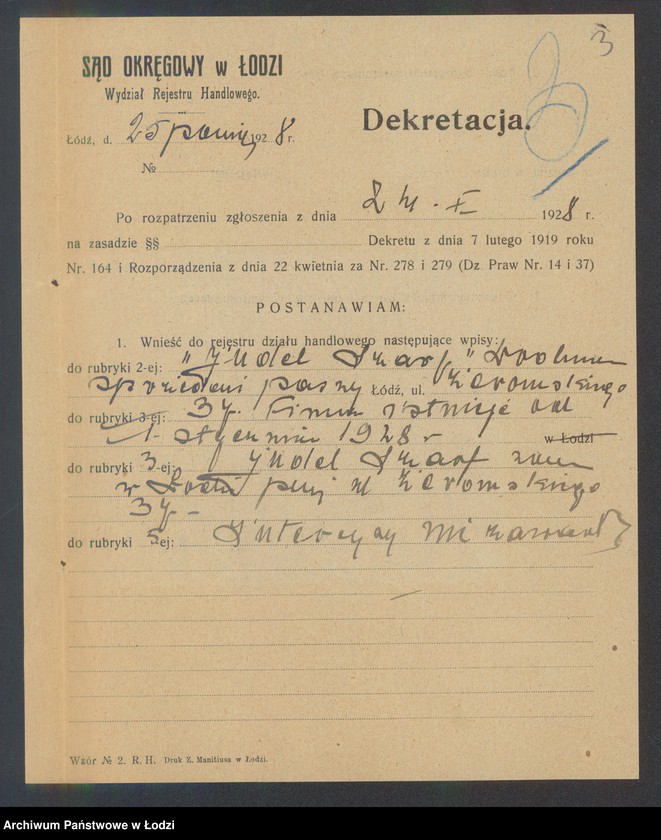 3
SĄD OKRĘGOWY w ŁODZI
Wydział Rejestru Handlowego.
Dekretacja.
Łódź, d. 25 1928 r.
№
Po rozpatrzeniu zgłoszenia z dnia 24. X 1928 r.
na zasadzie §§ Dekretu z dnia 7 lutego 1919 roku
Nr. 164 i Rozporządzenia z dnia 22 kwietnia za Nr. 278 i 279 (Dz Praw Nr. 14 i 37)
POSTANAWIAM:
1. Wnieść do rejestru działu handlowego następujące wpisy:
do rubryki 2-ej: "Judel Szarf"
paszy Łódź, ul. Żeromskiego
do rubryki 3-ej: 37. Firma istnieje od
1 stycznia 1928 r w Łodzi
do rubryki 3-ej: Judel Szarf zam
w Łodzi przy ul Żeromskiego
37 -
do rubryki 5ej: Intercyzy nie zawarł
Wzór № 2. R. H. Druk Z. Manitiusa w Łodzi.
Archiwum Państwowe w Łodzi